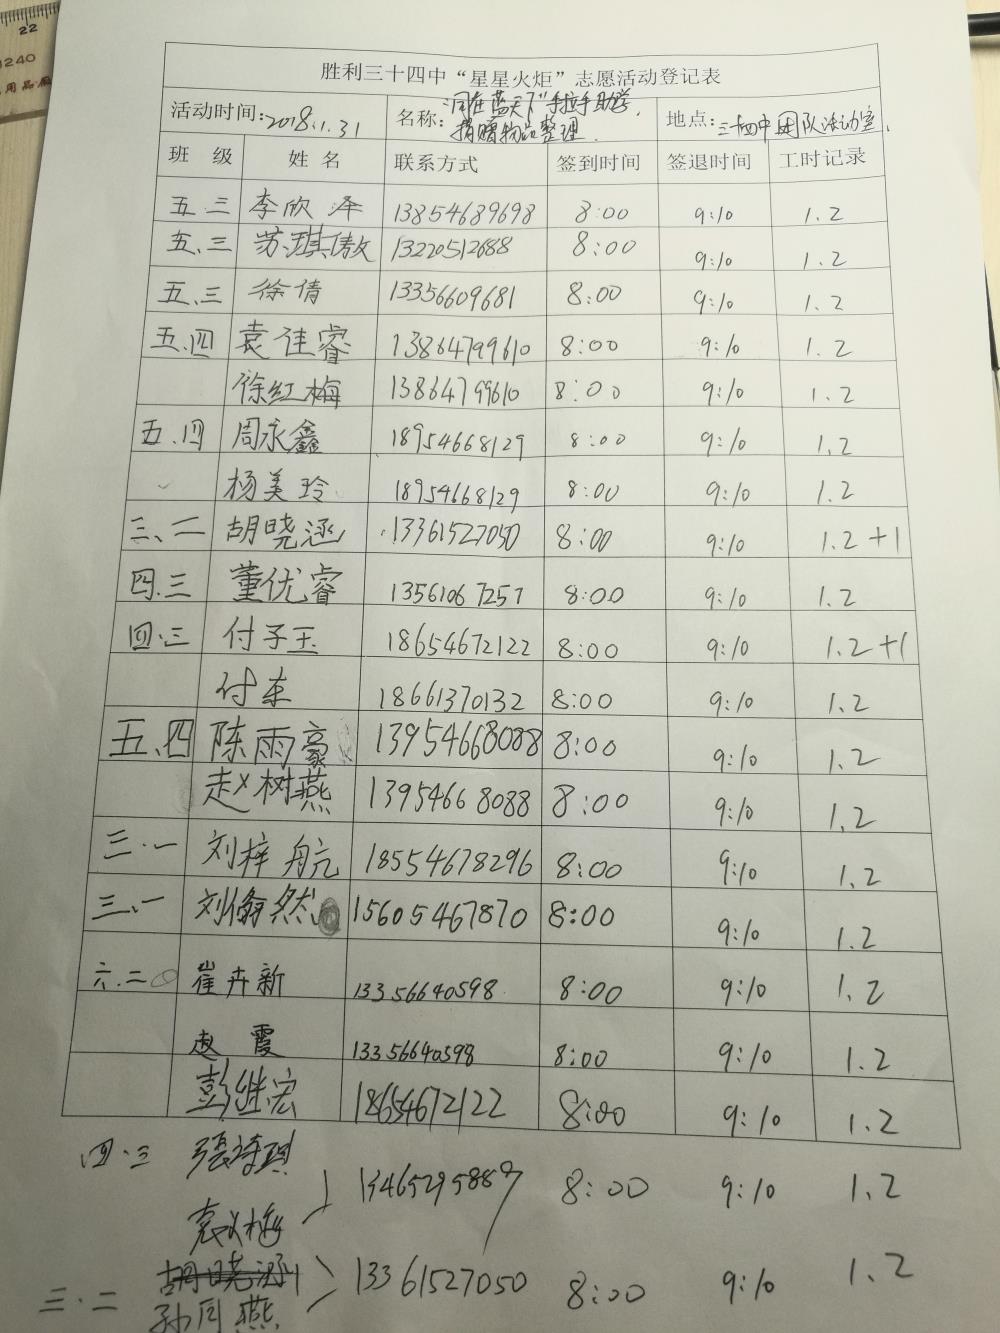 22
240
用品厂
胜利三十四中“星星火炬”志愿活动登记表
活动时间: 2018.1.31 名称: “同在蓝天下”手拉手助学, 捐赠物品整理. 地点: 三十四中团队活动室.
班 级 姓 名 联系方式 签到时间 签退时间 工时记录
五.三 李欣泽 13854689698 8:00 9:10 1.2
五.三 苏琪傲 13220512688 8:00 9:10 1.2
五.三 徐倩 13356609681 8:00 9:10 1.2
五.四 袁佳睿 13864799610 8:00 9:10 1.2
徐红梅 13864799610 8:00 9:10 1.2
五.四 周永鑫 18954668129 8:00 9:10 1.2
杨美玲 18954668129 8:00 9:10 1.2
三、二 胡晓涵 13361527050 8:00 9:10 1.2+1
四.三 董优睿 13561067257 8:00 9:10 1.2
四.三 付子玉 18654672122 8:00 9:10 1.2+1
付东 18661370132 8:00 9:10 1.2
五.四 陈雨豪 13954668088 8:00 9:10 1.2
赵树燕 13954668088 8:00 9:10 1.2
三.一 刘梓航 18554678296 8:00 9:10 1.2
三.一 刘翰然 15605467870 8:00 9:10 1.2
六.二 崔卉新 13356640598 8:00 9:10 1.2
赵霞 13356640598 8:00 9:10 1.2
彭继宏 18654672122 8:00 9:10 1.2
四.三 張诗琪 13465295889 8:00 9:10 1.2
袁义梅
胡晓涵
三.二 孙同燕 13361527050 8:00 9:10 1.2